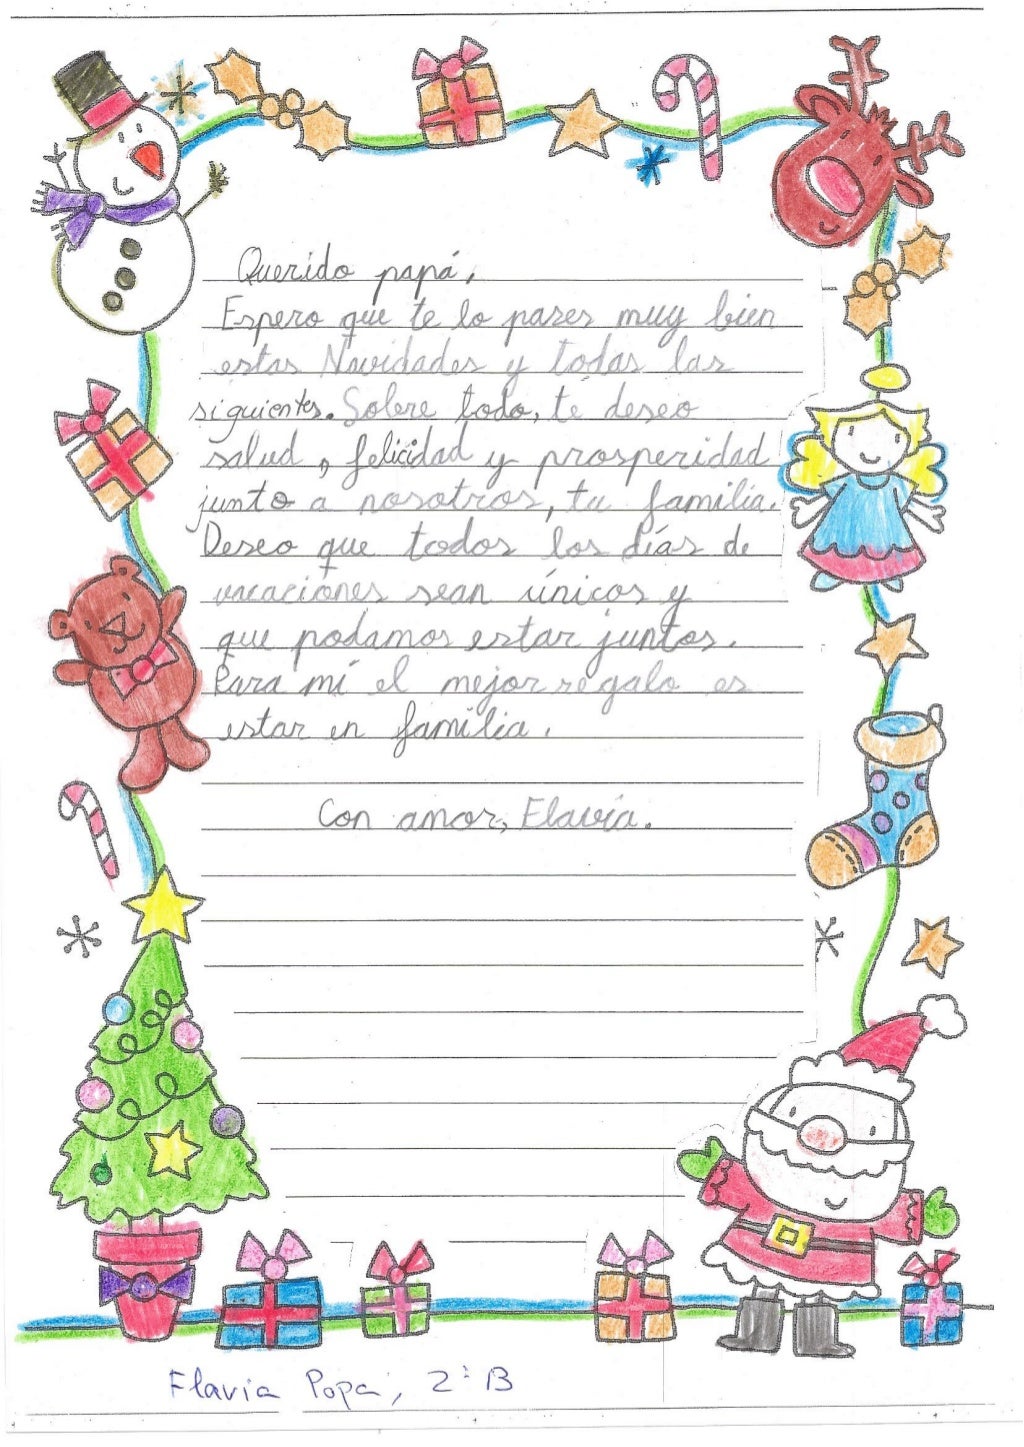 Querido papá,
Espero que te lo pases muy bien
estas Navidades y todas las
siguientes. Sobre todo, te deseo
salud, felicidad y prosperidad
junto a nosotros, tu familia.
Deseo que todos los días de
vacaciónes sean únicos y
que podamos estar juntos.
Para mí el mejor regalo es
estar en familia.
Con amor, Flavia.
Flavia Popa, 2º B